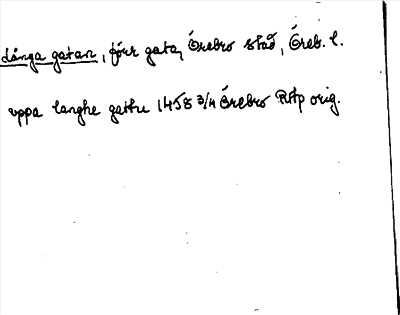 Långa gatan, förr gata, Örebro stad, Öreb. l.
uppa langhe gathu 1458 3/4 Örebro RAp orig.